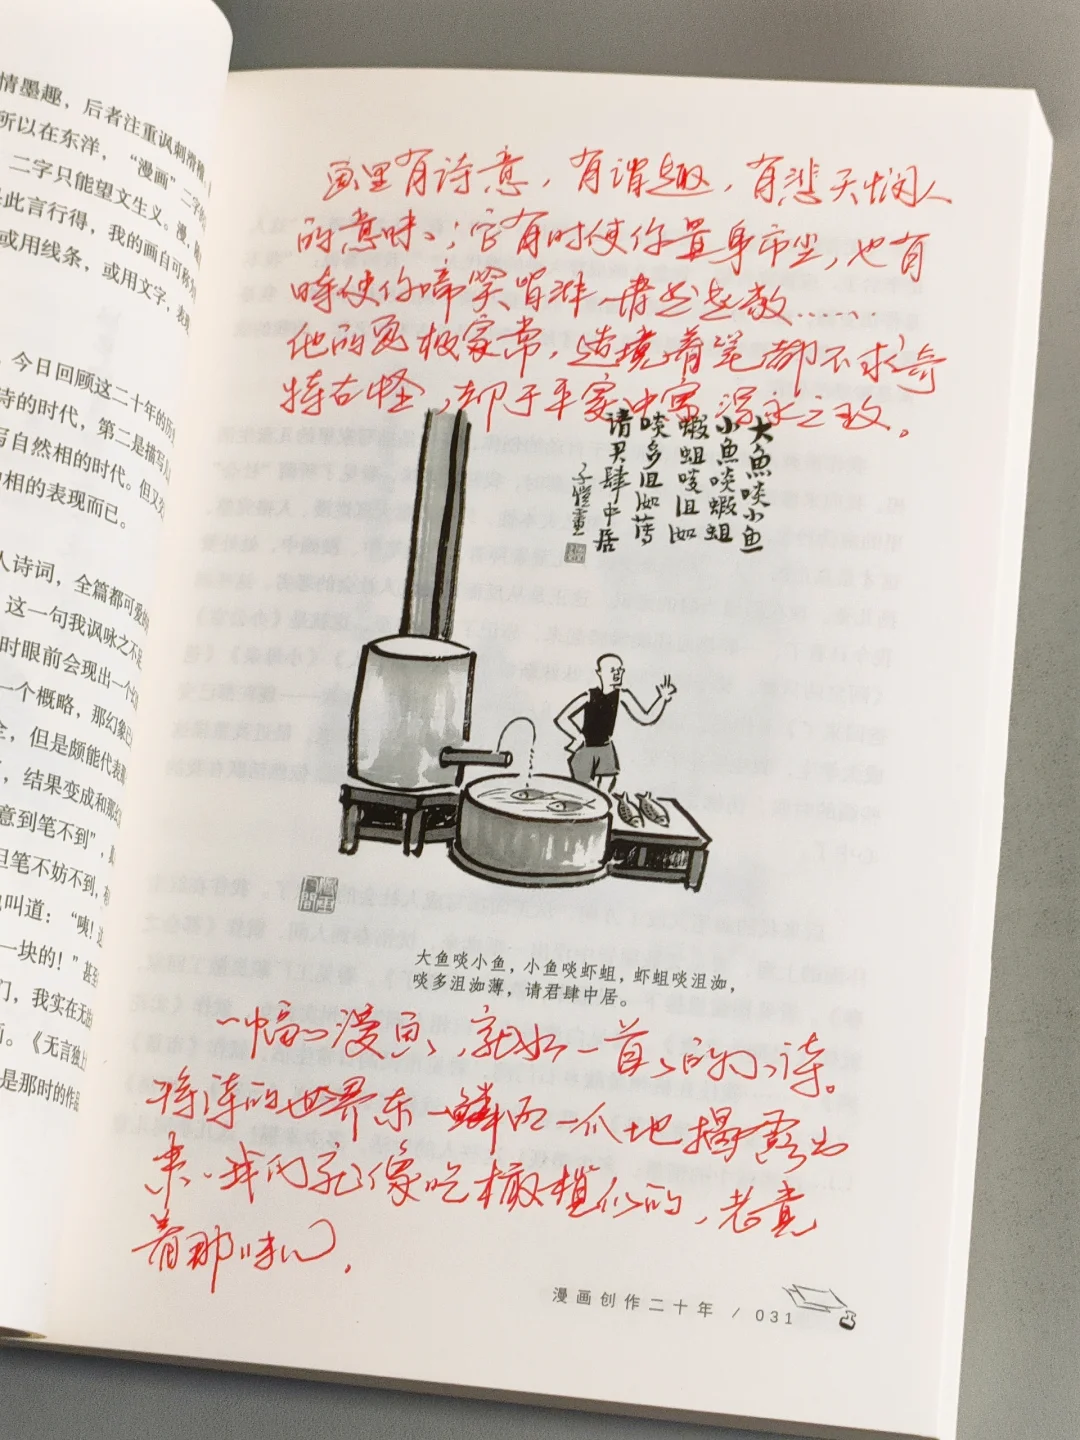 情墨趣，后者注重讽刺滑稽。
所以在东洋，“漫画”二字的
二字只能望文生义。漫，随
此言行得，我的画自可称为
或用线条，或用文字，表现
今日回顾这二十年的历
诗的时代，第二是描写儿
写自然相的时代。但又交
相的表现而已。
人诗词，全篇都可爱的
这一句我讽咏之不足
时眼前会现出一个幻
一个概略，那幻象已
全，但是颇能代表
，结果变成和那幻
意到笔不到”，
但笔不妨不到，
叫道：“咦！这
一块的！”甚至
们，我实在无
。《无言独上
是那时的作品
画里有诗意，有谐趣，有悲天悯人
的意味；它有时使你置身市尘，也有
时使你啼笑皆非，肃然起敬……
他的画极家常，造境着笔都不求奇
特古怪，却于平实中寓深永之致。
大魚啖小魚
小魚啖蝦蛆
蝦蛆啖沮洳
啖多沮洳薄
请君肆中居
子愷畫
大鱼啖小鱼，小鱼啖虾蛆，虾蛆啖沮洳，
啖多沮洳薄，请君肆中居。
一幅幅漫画，就如一首首的小诗。
将诗的世界东一鳞西一爪地揭露出
来。我们就像吃橄榄似的，老觉
着那味儿。
漫画创作二十年 / 031